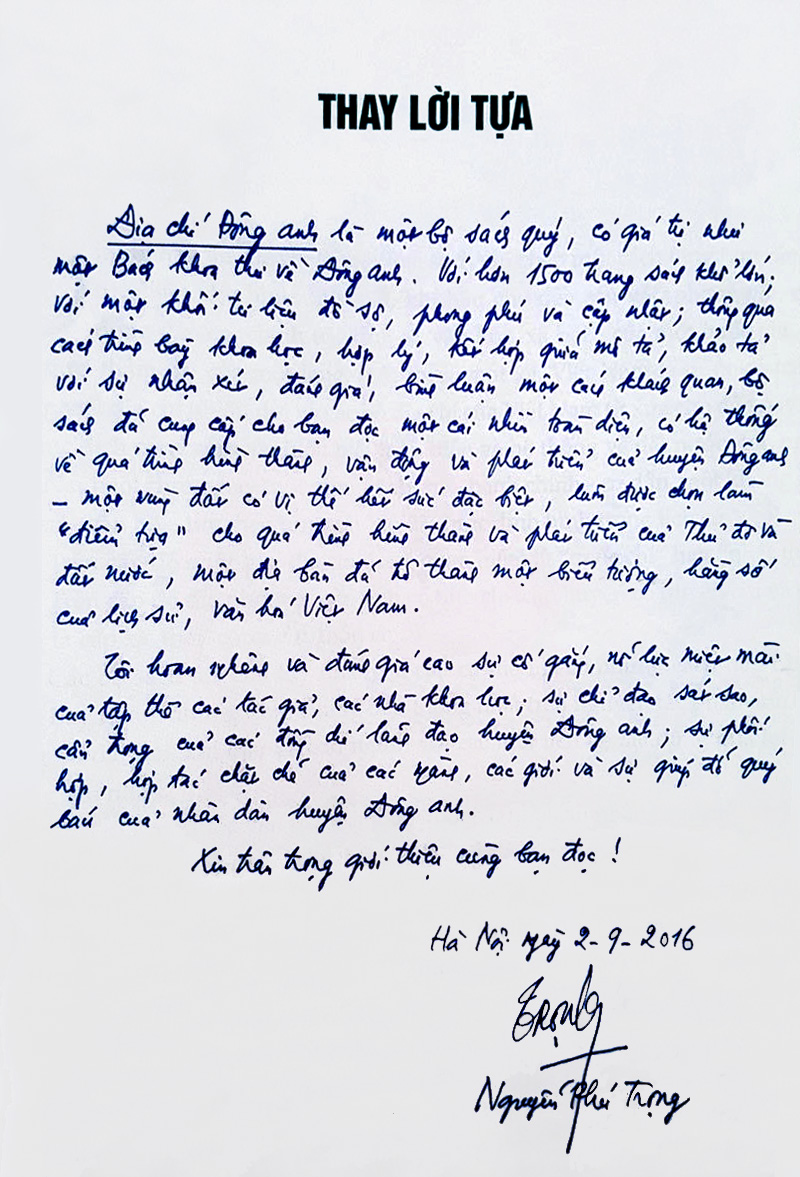 THAY LỜI TỰA
Địa chí Đông Anh là một bộ sách quý, có giá trị như
một Bách khoa thư về Đông Anh. Với hơn 1500 trang sách khổ lớn;
với một khối tư liệu đồ sộ, phong phú và cập nhật; thông qua
cách trình bày khoa học, hợp lý, kết hợp giữa mô tả, khảo tả
với sự nhận xét, đánh giá, bình luận một cách khách quan, bộ
sách đã cung cấp cho bạn đọc một cái nhìn toàn diện, có hệ thống
về quá trình hình thành, vận động và phát triển của huyện Đông Anh
– một vùng đất có vị thế hết sức đặc biệt, luôn được chọn làm
"điểm tựa" cho quá trình hình thành và phát triển của Thủ đô và
đất nước, một địa bàn đã trở thành một biểu tượng, hằng số
của lịch sử, văn hoá Việt Nam.
Tôi hoan nghênh và đánh giá cao sự cố gắng, nỗ lực miệt mài
của tập thể các tác giả, các nhà khoa học; sự chỉ đạo sát sao,
cẩn trọng của các đồng chí lãnh đạo huyện Đông Anh; sự phối
hợp, hợp tác chặt chẽ của các ngành, các giới và sự giúp đỡ quý
báu của nhân dân huyện Đông Anh.
Xin trân trọng giới thiệu cùng bạn đọc!
Hà Nội ngày 2-9-2016
Trọng
Nguyễn Phú Trọng